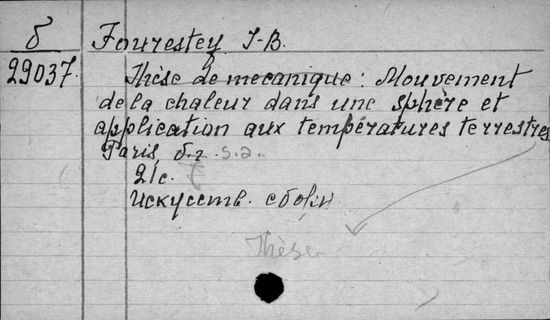 б Fourestey J-B.
29037. Thèse de mecanique: Mouvement
de la chaleur dans une sphère et
application aux températures terrestres
Paris, б.г. s.a.
21с.
Искусств. сборн.
Thèse